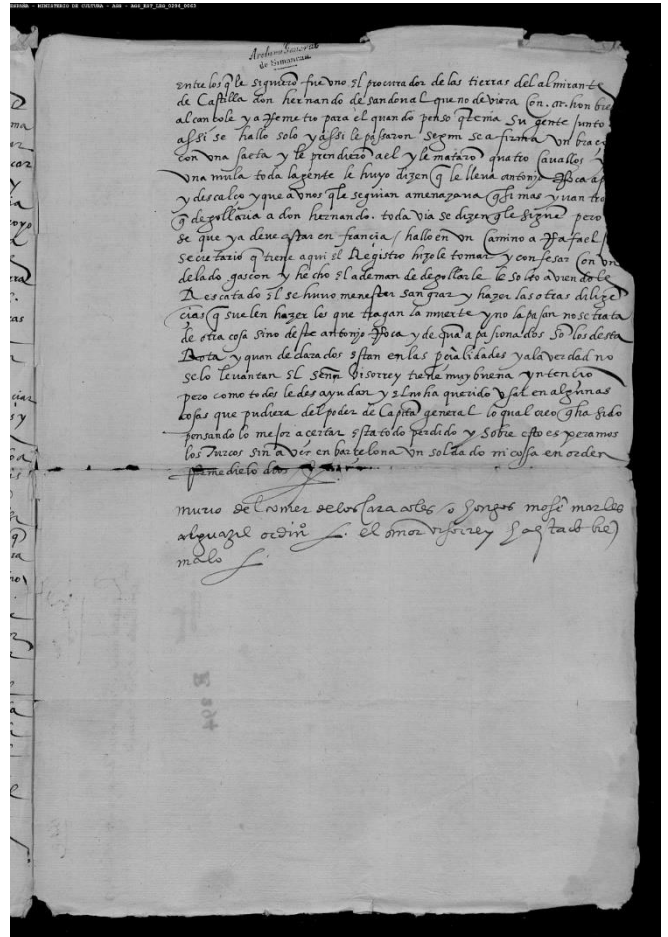 ESPAÑA - MINISTERIO DE CULTURA - AGS - AGS_EST_LEG_0294_0063
Archivo General
de Simancas
entre los q̃ le siguierõ fue uno el procurador de las tierras del almirante
de Castilla don hernando de sandoval que no deviera
alcançole y a Remetio para el quando penso q̃ tenia su gente junto
assi se hallo solo y assi le passaron segun se afirma un braço
con una saeta y le prendierõ a el y le matarõ quatro cavallos y
una mula toda la gente le huyo dizen q̃ le lleva antonjo Roca a
y descalço y que a unos q̃ le seguian amenazava q̃ si mas yvan tro
q̃ degollaria a don hernando. toda via se dizen q̃ le sigue pero
se que ya deve estar en francia / hallo en un Camino a Rafael
secretario q̃ tiene aqui el Registro hizole tomar y confesar con un
delado gascon y hecho el ademan de degollarle le solto aviendole
Rescatado el se huvo menester sangrar y hazer las otras dilizẽ
cias q̃ suelen hazer los que tragan la muerte y no la pasan no se trata
de otra cosa sino deste antonjo Roca y de quã apasionados sõ los desta
Rota y quan declarados estan en las pcialidades y a la verdad no
se lo levantan el señor visorrey tiene muy buena yntencio
pero como todos le desayudan y el no ha querido usar en algunas
cosas que pudiera del poder de Capitã general lo qual creo q̃ ha sido
pensando lo mejor acertar esta todo perdido y sobre esto esperamos
los Turcos sin aver en barcelona un soldado ni cossa en orden
Remedielo dios
murio de mosẽ marles
alguazil ordinº el señor visorrey
malo